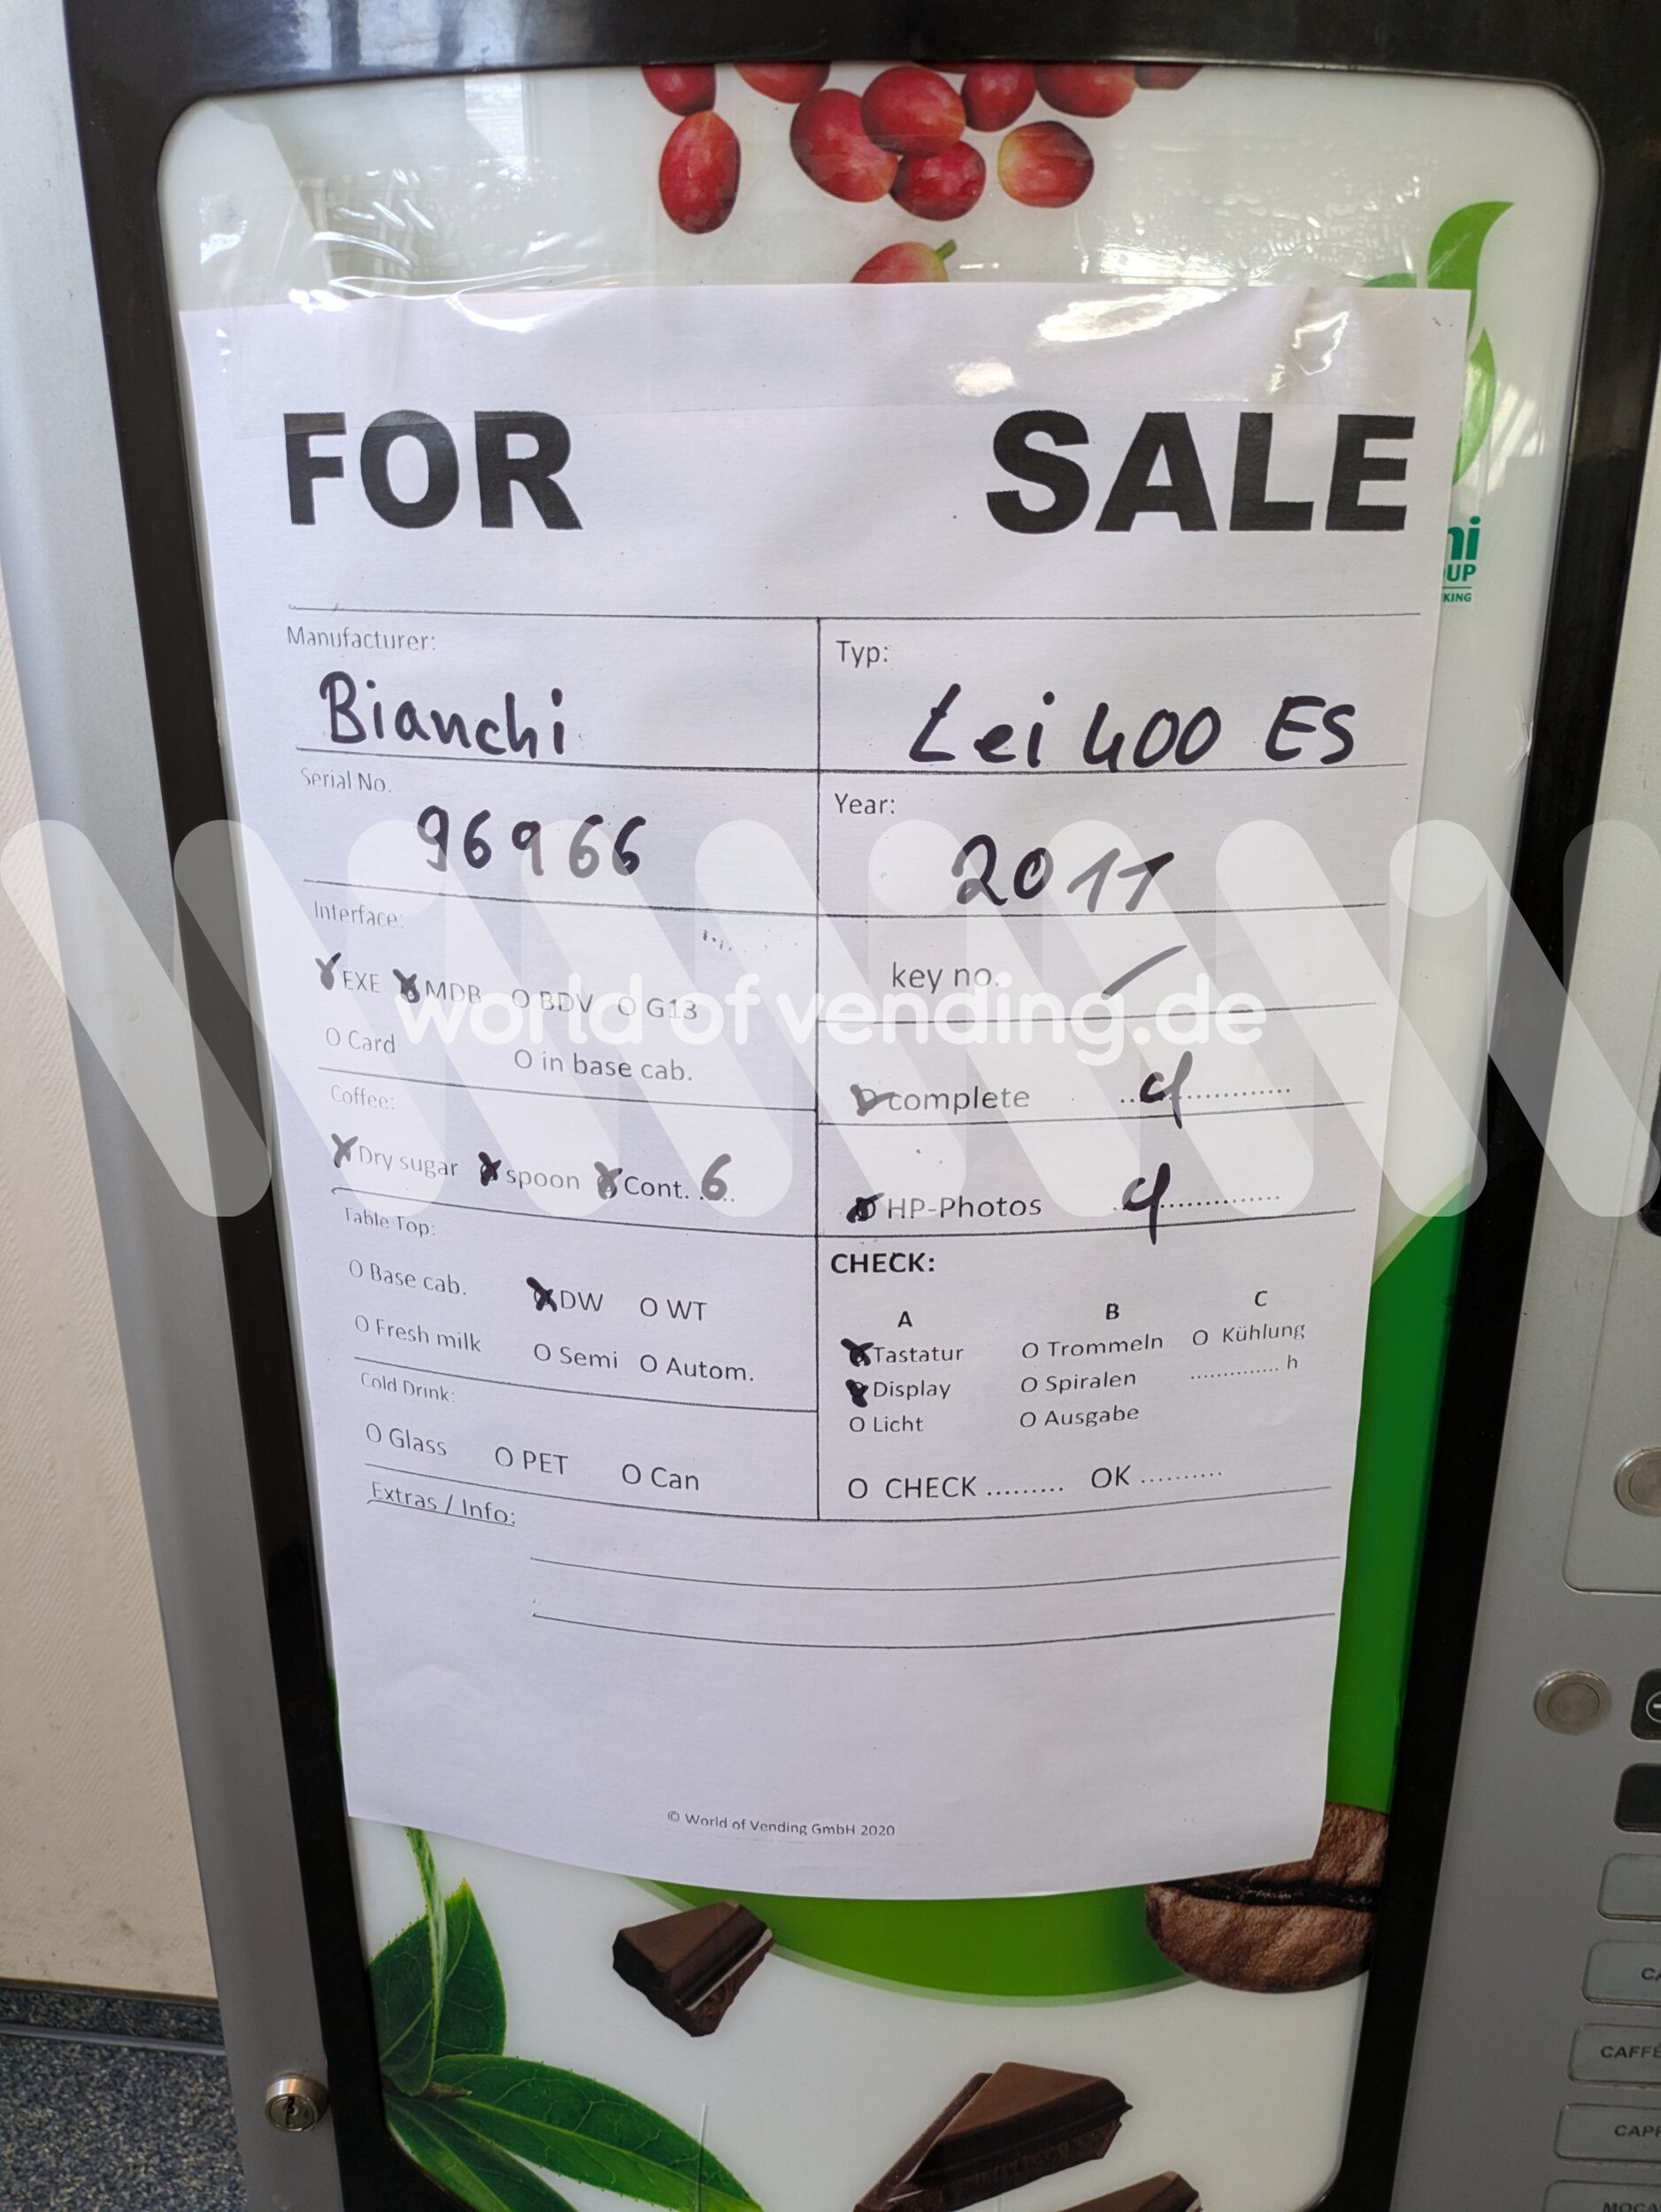 FOR SALE
Manufacturer: Typ:
Bianchi Lei 400 ES
Serial No. Year:
96966 2011
Interface:
EXE MDB O BDV O G13
key no. /
world of vending.de
O Card O in base cab.
complete ..............
Coffee:
Dry sugar spoon Cont. 6
HP-Photos ..............
Table Top:
O Base cab. DW O WT
O Fresh milk O Semi O Autom.
CHECK:
A B C
Tastatur O Trommeln O Kühlung
Display O Spiralen .............. h
O Licht O Ausgabe
Cold Drink:
O Glass O PET O Can
O CHECK ......... OK ..........
Extras / Info:
© World of Vending GmbH 2020
ni
UP
KING
CAFFÈ